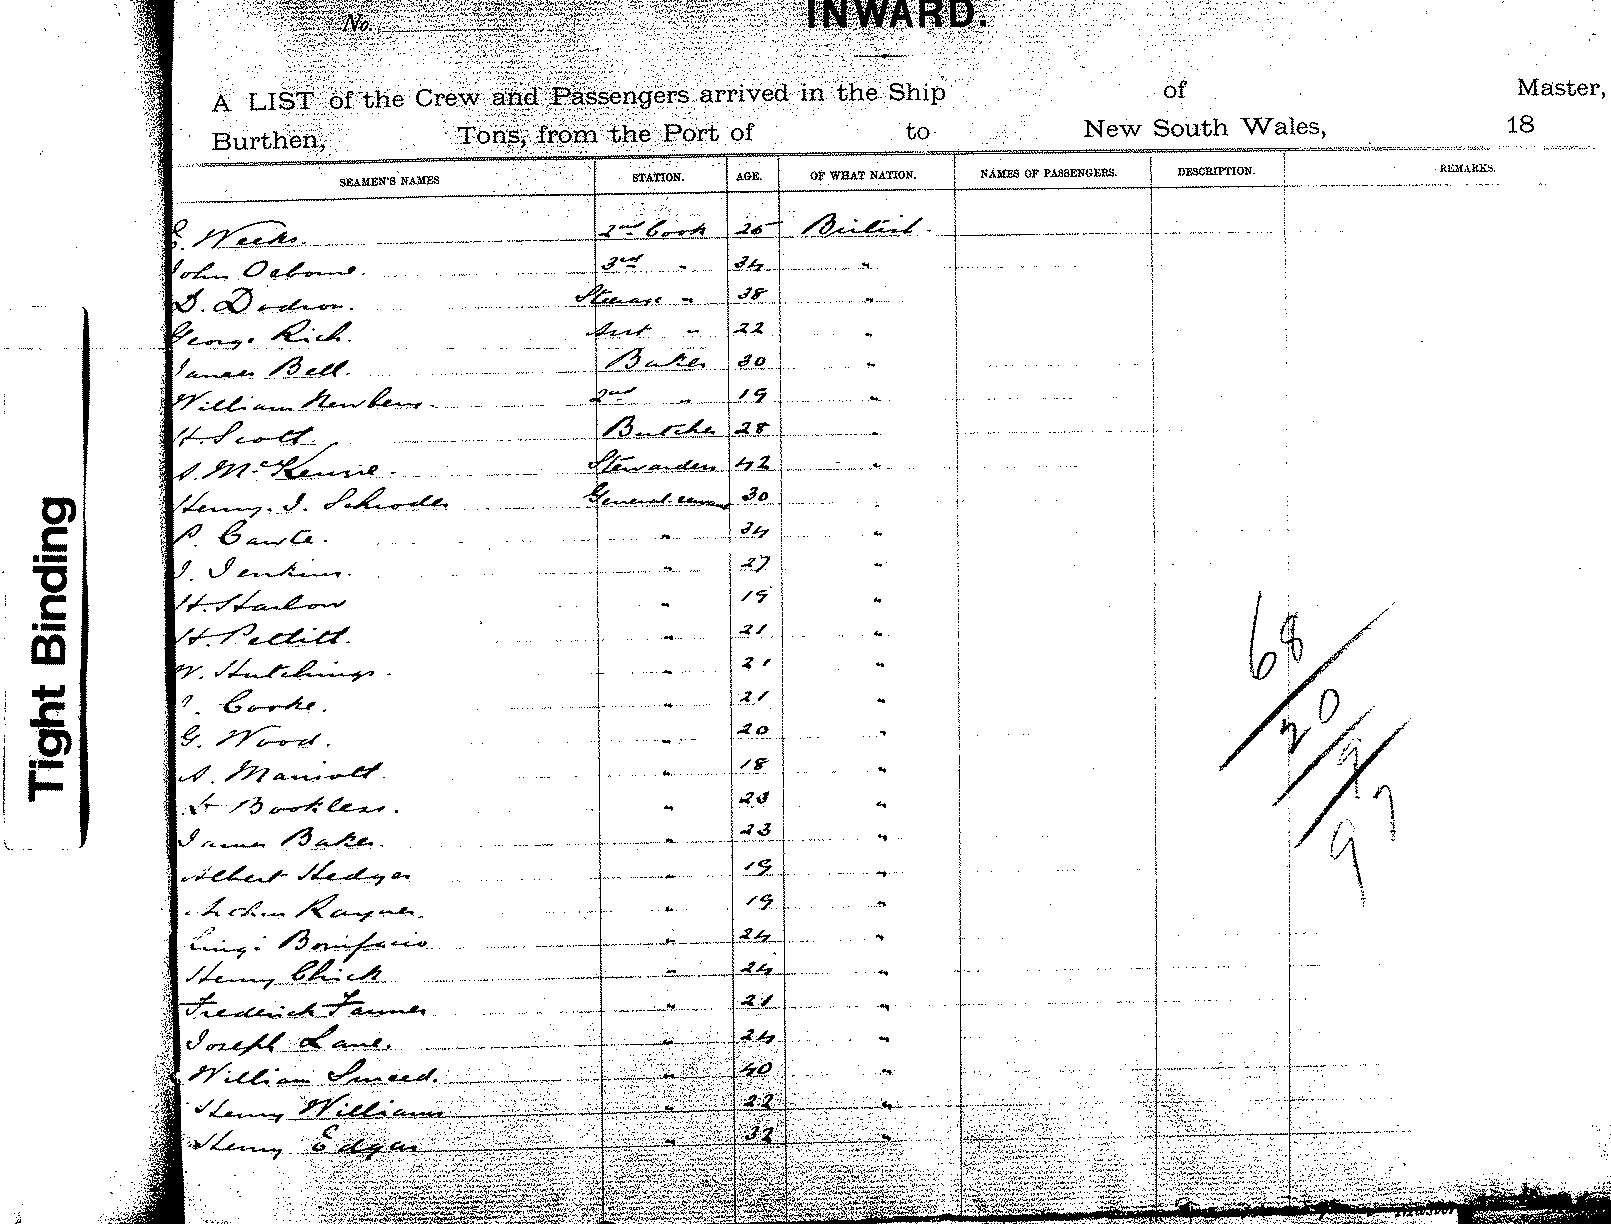 No.
INWARD.
A LIST of the Crew and Passengers arrived in the Ship of Master,
Burthen, Tons, from the Port of to New South Wales, 18
SEAMEN'S NAMES STATION. AGE. OF WHAT NATION. NAMES OF PASSENGERS. DESCRIPTION. REMARKS.
E. Weeks. 2nd Cook 25 British.
John Osborne. 3rd " 34 "
D. Dodson. " 38 "
George Rich. Asst " 22 "
James Bell. Baker 30 "
William Newbery. 2nd " 19 "
H. Scott. Butcher 28 "
A. McKenzie. Stewardess 42 "
Henry. J. Schroder General servant 30 "
P. Cawte. " 34 "
J. Jenkins. " 27 "
H. Harlow " 19 "
H. Pettitt. " 21 "
W. Hutchings. " 21 "
Cooke. " 21 "
G. Wood. " 20 "
A. " 18 "
H Bookless. " 23 "
James Baker. " 23 "
Albert Hedger " 19 "
Arthur Rayner. " 19 "
Luigi Bonifacio " 24 "
Henry Chick " 24 "
Frederick Farmer " 21 "
Joseph Lane. " 24 "
William Smeed. " 40 "
Henry Williams " 22 "
Henry Edgar " 32 "
68
20
9
97
Tight Binding